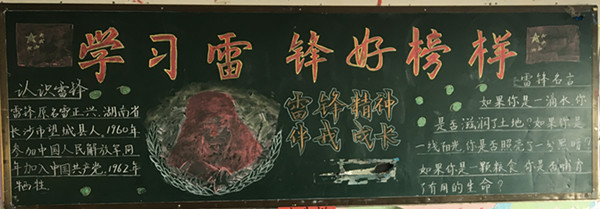 学习雷锋好榜样
认识雷锋
雷锋原名雷正兴,湖南省
长沙市望城县人,1960年
参加中国人民解放军同
年加入中国共产党,1962年
牺牲。
雷锋精神
伴我成长
雷锋名言
如果你是一滴水你
是否滋润了土地?如果你是
一线阳光你是否照亮了一分黑暗?
如果你是一颗粮食你是否哺育
了有用的生命?